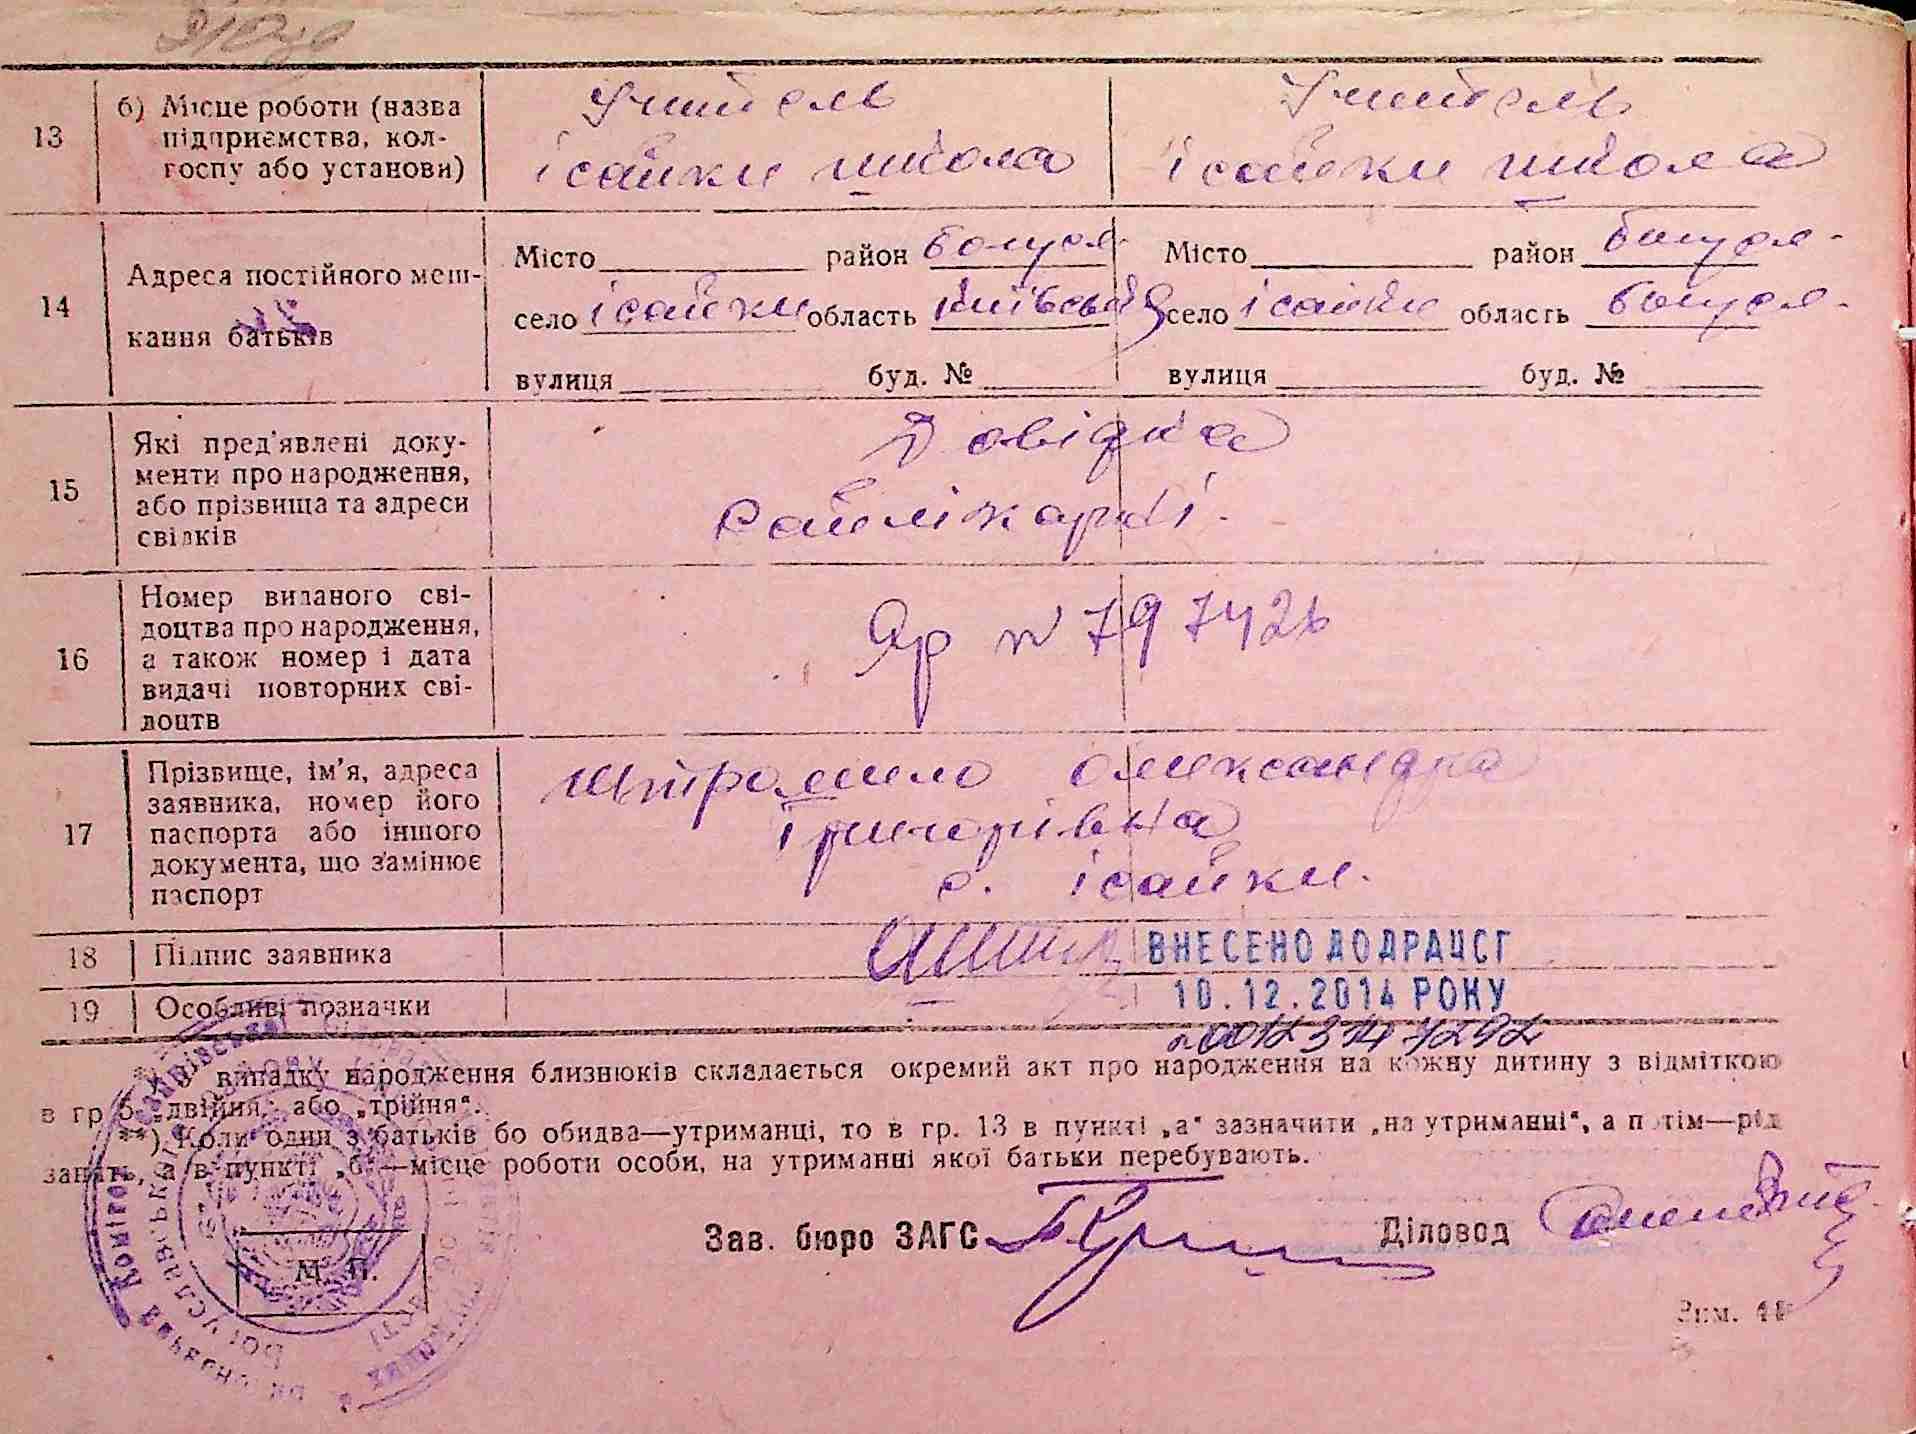 13 б) Місце роботи (назва Учитель Учитель
підприємства, кол-
госпу або установи) ісайки школа ісайки школа
14 Адреса постійного меш- Місто район богусл- Місто район богусл-
кання батьків село ісайки область київська село ісайки область богусл-
вулиця буд. № вулиця буд. №
15 Які пред'явлені доку- Довідка
менти про народження,
або прізвища та адреси сайлікарні.
свідків
16 Номер виданого сві-
доцтва про народження, Яр № 797426
а також номер і дата
видачі повторних сві-
доцтв
17 Прізвище, ім'я, адреса олександра
заявника, номер його
паспорта або іншого григорівна
документа, що замінює с. ісайки.
паспорт
18 Підпис заявника ВНЕСЕНО ДО ДРАЦСГ
19 Особливі позначки 10.12.2014 РОКУ
*) У випадку народження близнюків складається окремий акт про народження на кожну дитину з відміткою
в гр. 5 „двійня“ або „трійня“.
**) Коли один з батьків бо обидва—утриманці, то в гр. 13 в пункті „а“ зазначити „на утриманні“, а потім—рід
занять, а в пункті „б“—місце роботи особи, на утриманні якої батьки перебувають.
Зав. бюро ЗАГС Діловод
М. П.